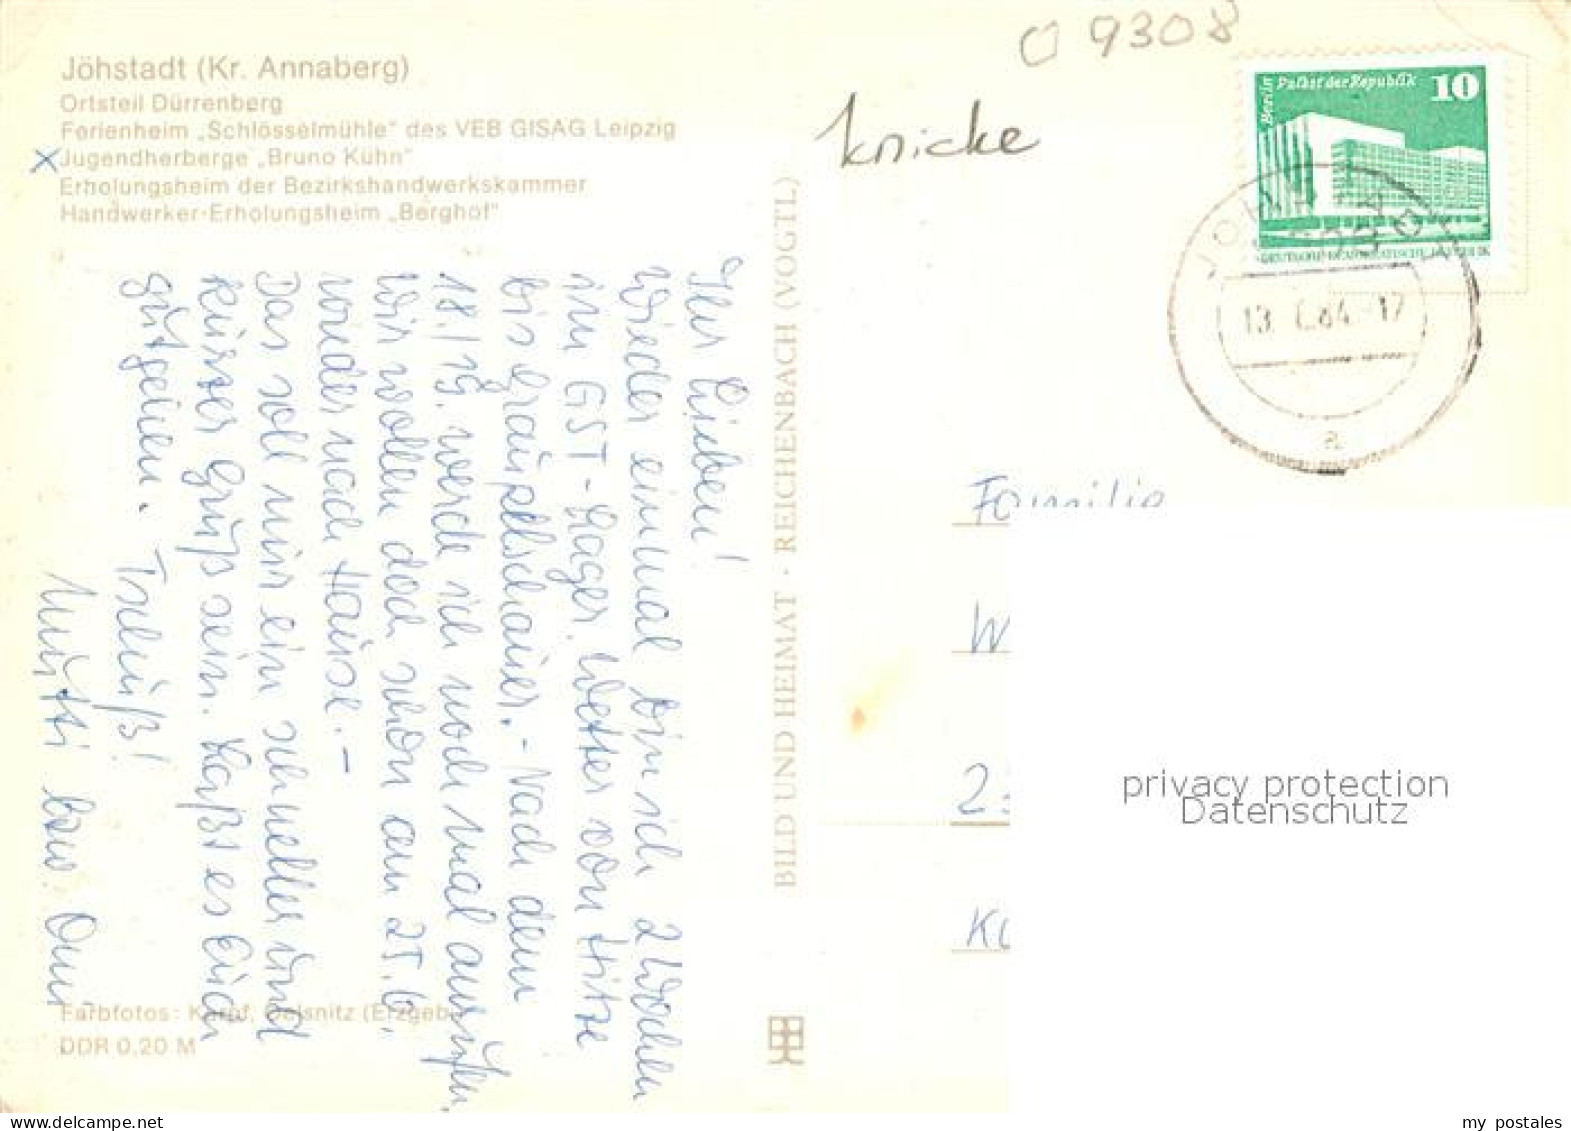 Jöhstadt (Kr. Annaberg)
Ortsteil Dürrenberg
Ferienheim „Schlösselmühle“ des VEB GISAG Leipzig
x Jugendherberge „Bruno Kühn“
Erholungsheim der Bezirkshandwerkskammer
Handwerker-Erholungsheim „Berghof“
Ihr Lieben!
Wieder einmal bin ich 2 Wochen
im GST-Lager. Wetter von Hitze
bis Graupelschauer. - Nach dem
18./19. werde ich noch mal anrufen,
wir wollen doch schon am 25.6.
wieder nach Hause. -
Das soll nur ein schneller und
kurzer Gruß sein. Laßt es Euch
gutgehen. Tschüß!
Mutti bzw. Omi
Farbfotos: Kampf, Oelsnitz (Erzgeb.)
DDR 0,20 M
BILD UND HEIMAT · REICHENBACH (VOGTL)
O 9308
knicke
Berlin Palast der Republik 10
DEUTSCHE DEMOKRATISCHE REPUBLIK
JÖHSTADT
13. 6.84.-17
a
Familie
W
2
privacy protection
Datenschutz
my_postales